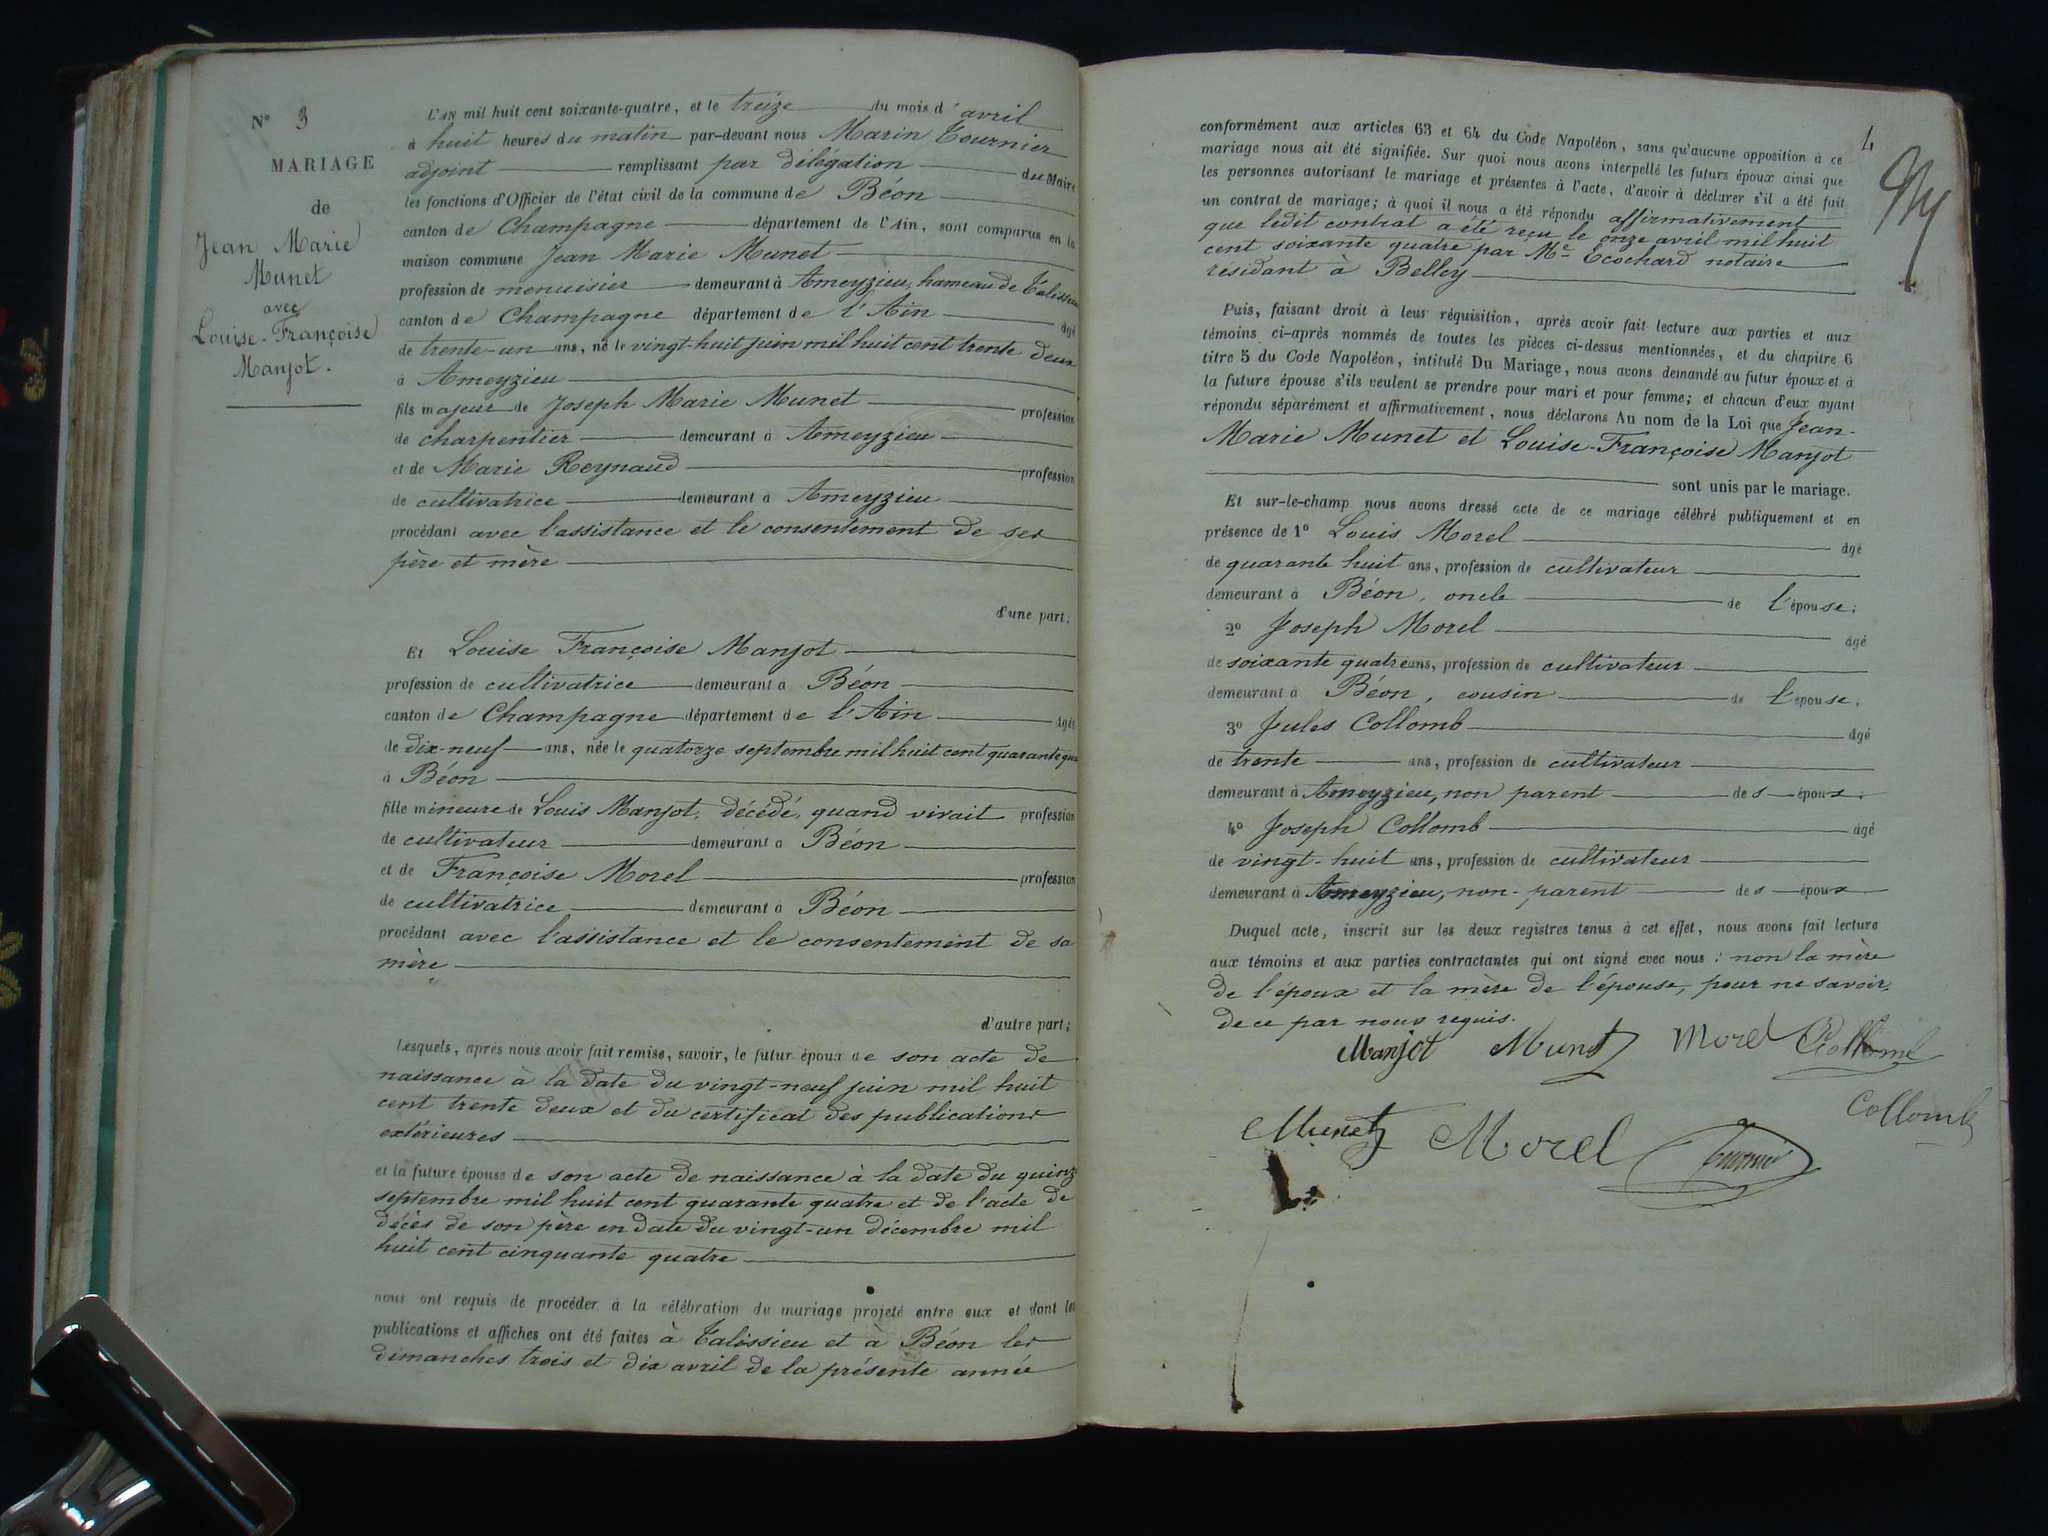 N° 3
MARIAGE
de
Jean Marie
Munet
avec
Louise-Françoise
Manjot.
L'AN mil huit cent soixante-quatre, et le treize du mois d'avril
à huit heures du matin par-devant nous Marin Tournier
adjoint remplissant par délégation du Maire
les fonctions d'Officier de l'état civil de la commune de Béon
canton de Champagne département de l'Ain, sont comparus en la
maison commune Jean Marie Munet
profession de menuisier demeurant à Ameyzieu, hameau de Talissieu
canton de Champagne département de l'Ain âgé
de trente-un ans, né le vingt-huit juin mil huit cent trente deux
à Ameyzieu
fils majeur de Joseph Marie Munet profession
de charpentier demeurant à Ameyzieu
et de Marie Reynaud profession
de cultivatrice demeurant à Ameyzieu
procédant avec l'assistance et le consentement de ses
père et mère
d'une part;
Et Louise Françoise Manjot
profession de cultivatrice demeurant à Béon
canton de Champagne département de l'Ain âgée
de dix-neuf ans, née le quatorze septembre mil huit cent quarante qua
à Béon
fille mineure de Louis Manjot, décédé, quand vivait profession
de cultivateur demeurant à Béon
et de Françoise Morel profession
de cultivatrice demeurant à Béon
procédant avec l'assistance et le consentement de sa
mère
d'autre part;
Lesquels, après nous avoir fait remise, savoir, le futur époux de son acte de
naissance à la date du vingt-neuf juin mil huit
cent trente deux et du certificat des publications
extérieures
et la future épouse de son acte de naissance à la date du quinz
septembre mil huit cent quarante quatre et de l'acte de
décès de son père en date du vingt-un décembre mil
huit cent cinquante quatre
nous ont requis de procéder à la célébration du mariage projeté entre eux et dont les
publications et affiches ont été faites à Talissieu et à Béon les
dimanches trois et dix avril de la présente année
4
conformément aux articles 63 et 64 du Code Napoléon, sans qu'aucune opposition à ce
mariage nous ait été signifiée. Sur quoi nous avons interpellé les futurs époux ainsi que
les personnes autorisant le mariage et présentes à l'acte, d'avoir à déclarer s'il a été fait
un contrat de mariage; à quoi il nous a été répondu affirmativement
que ledit contrat a été reçu le onze avril mil huit
cent soixante quatre par Me Ecochard notaire
résidant à Belley
Puis, faisant droit à leur réquisition, après avoir fait lecture aux parties et aux
témoins ci-après nommés de toutes les pièces ci-dessus mentionnées, et du chapitre 6
titre 5 du Code Napoléon, intitulé Du Mariage, nous avons demandé au futur époux et à
la future épouse s'ils veulent se prendre pour mari et pour femme; et chacun d'eux ayant
répondu séparément et affirmativement, nous déclarons Au nom de la Loi que Jean-
Marie Munet et Louise-Françoise Manjot
sont unis par le mariage.
Et sur-le-champ nous avons dressé acte de ce mariage célébré publiquement et en
présence de 1° Louis Morel âgé
de quarante huit ans, profession de cultivateur
demeurant à Béon, oncle de l'épouse;
2° Joseph Morel âgé
de soixante quatre ans, profession de cultivateur
demeurant à Béon, cousin de l'épouse;
3° Jules Collomb âgé
de trente ans, profession de cultivateur
demeurant à Ameyzieu, non parent des époux.
4° Joseph Collomb âgé
de vingt-huit ans, profession de cultivateur
demeurant à Ameyzieu, non-parent des époux
Duquel acte, inscrit sur les deux registres tenus à cet effet, nous avons fait lecture
aux témoins et aux parties contractantes qui ont signé avec nous : non la mère
de l'époux et la mère de l'épouse, pour ne savoir,
de ce par nous requis.
Manjot Munet Morel Collomb
Collomb
Munet Morel Tournier